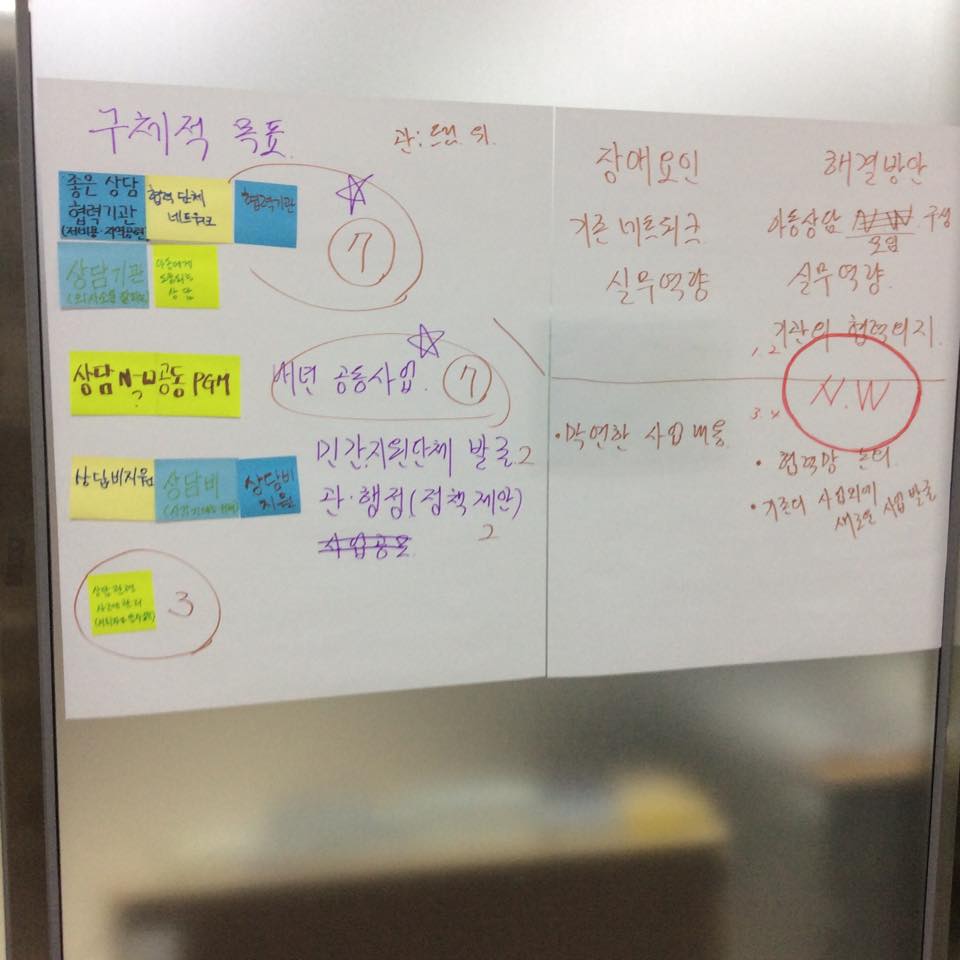 구체적 목표
관:
좋은 상담
협력기관
(저비용·지역공헌)
협력 단체
네트워크
협력기관
7
상담기관
아동에게
도움되는
상담
상담 N·W 공동 PGM
내년 공동사업
7
상담비지원
상담비
상담비
지원
민간지원단체 발굴 2
관·행정(정책제안)
2
사업공모
상담관련
3
장애요인
기존 네트워크
실무역량
막연한 사업내용
해결방안
아동상담 N.W 구성
모임
실무역량
기관의 협력의지
1, 2
N.W
3
· 협력망 논의
· 기존의 사업외에
새로운 사업 발굴